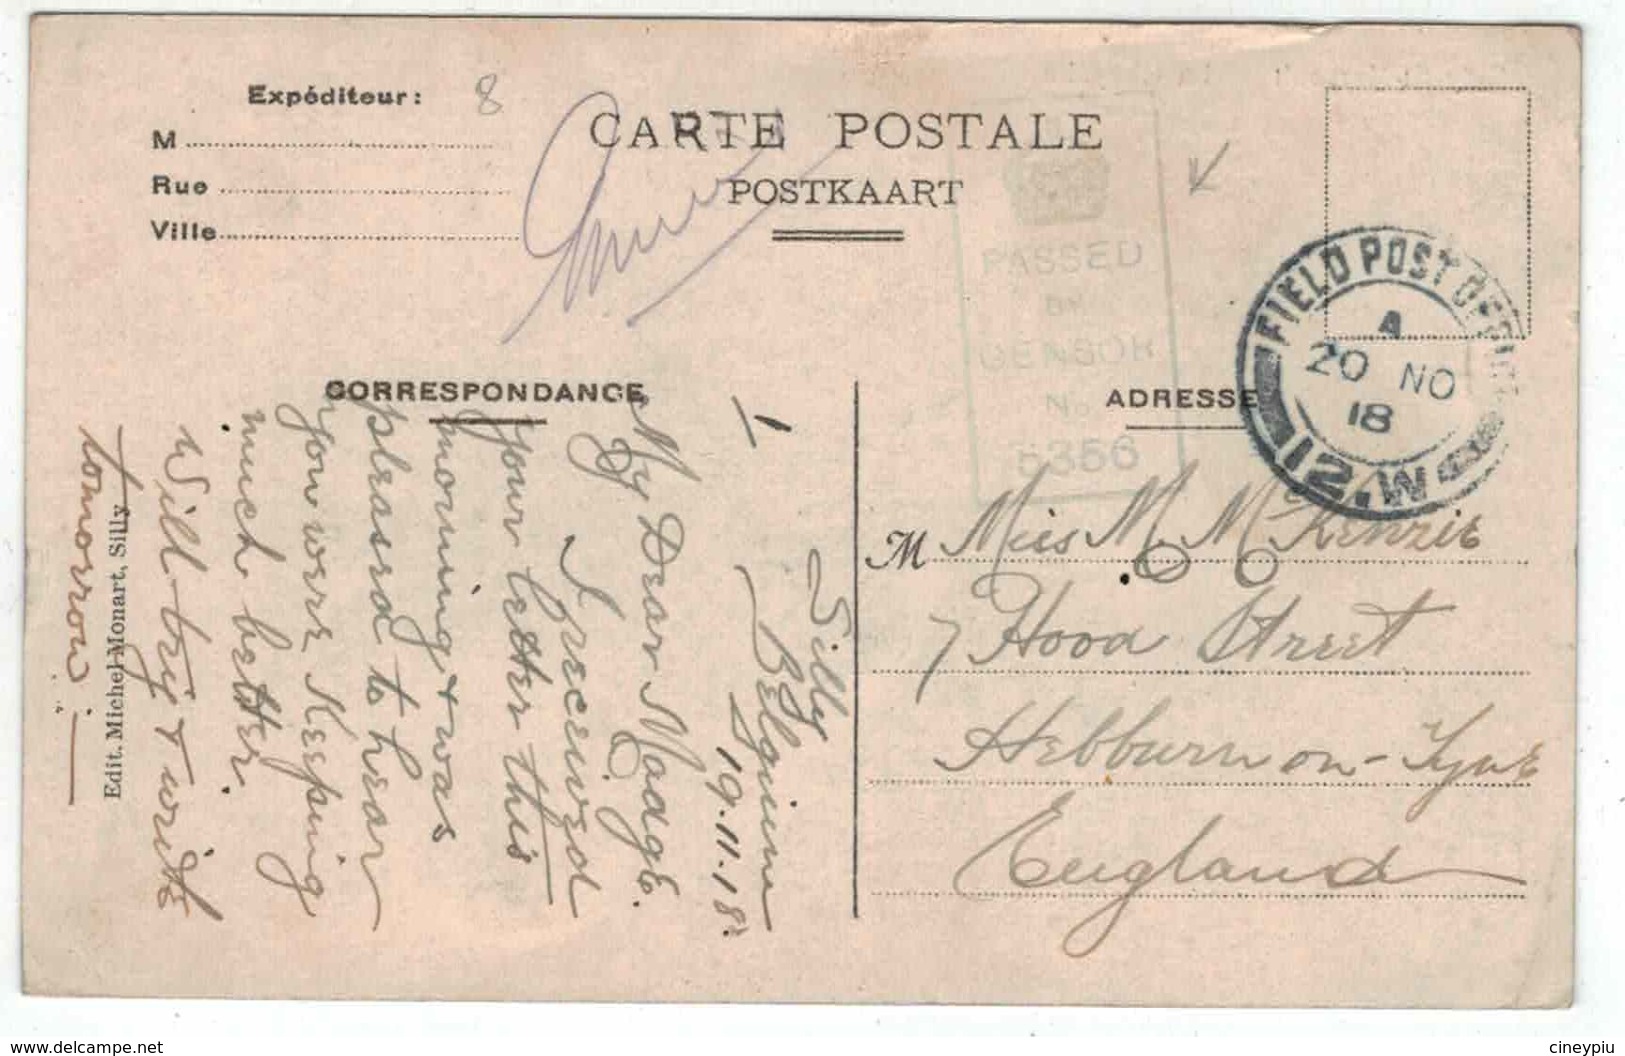 Expéditeur :
8
M
Rue
Ville
CARTE POSTALE
POSTKAART
PASSED
BY
CENSOR
No.
5356
FIELD POST OFFICE
A
20 NO
18
12.W
CORRESPONDANCE
1
Silly
Belgium
19.11.18.
My Dear Madge.
I received
your letter this
morning + was
pleased to hear
you were keeping
much better.
Will try + write
tomorrow :
Edit. Michel-Monart, Silly
ADRESSE
M Miss M. McKenzie
7 Hood Street
Hebburn on-Tyne
England
www.delcampe.net
cineypiu